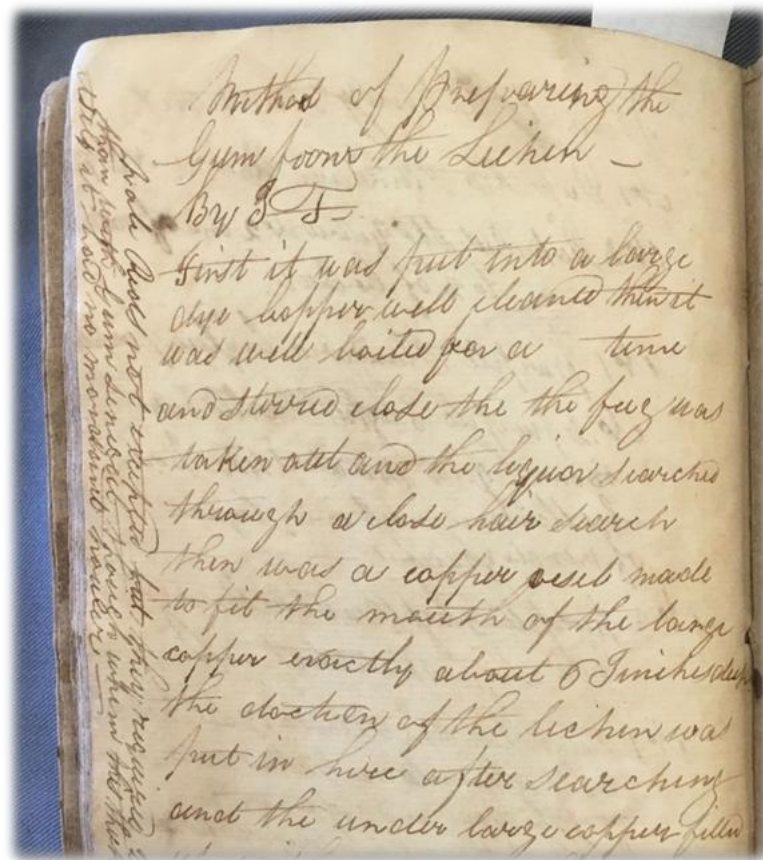 Method of Preparing the
Gum from the Lichen —
By J F
First it was put into a large
dye Copper well cleaned then it
was well boiled for a time
and stired close the the fug was
taken out and the liquor searched
through a close hair search
then was a copper vesel made
to fit the mouth of the large
copper exactly about 6 Inches deep
the doction of the lichen was
put in here after searching
and the under large copper filled
not excepted but they required
than Gum Senegal however when
dry it had no